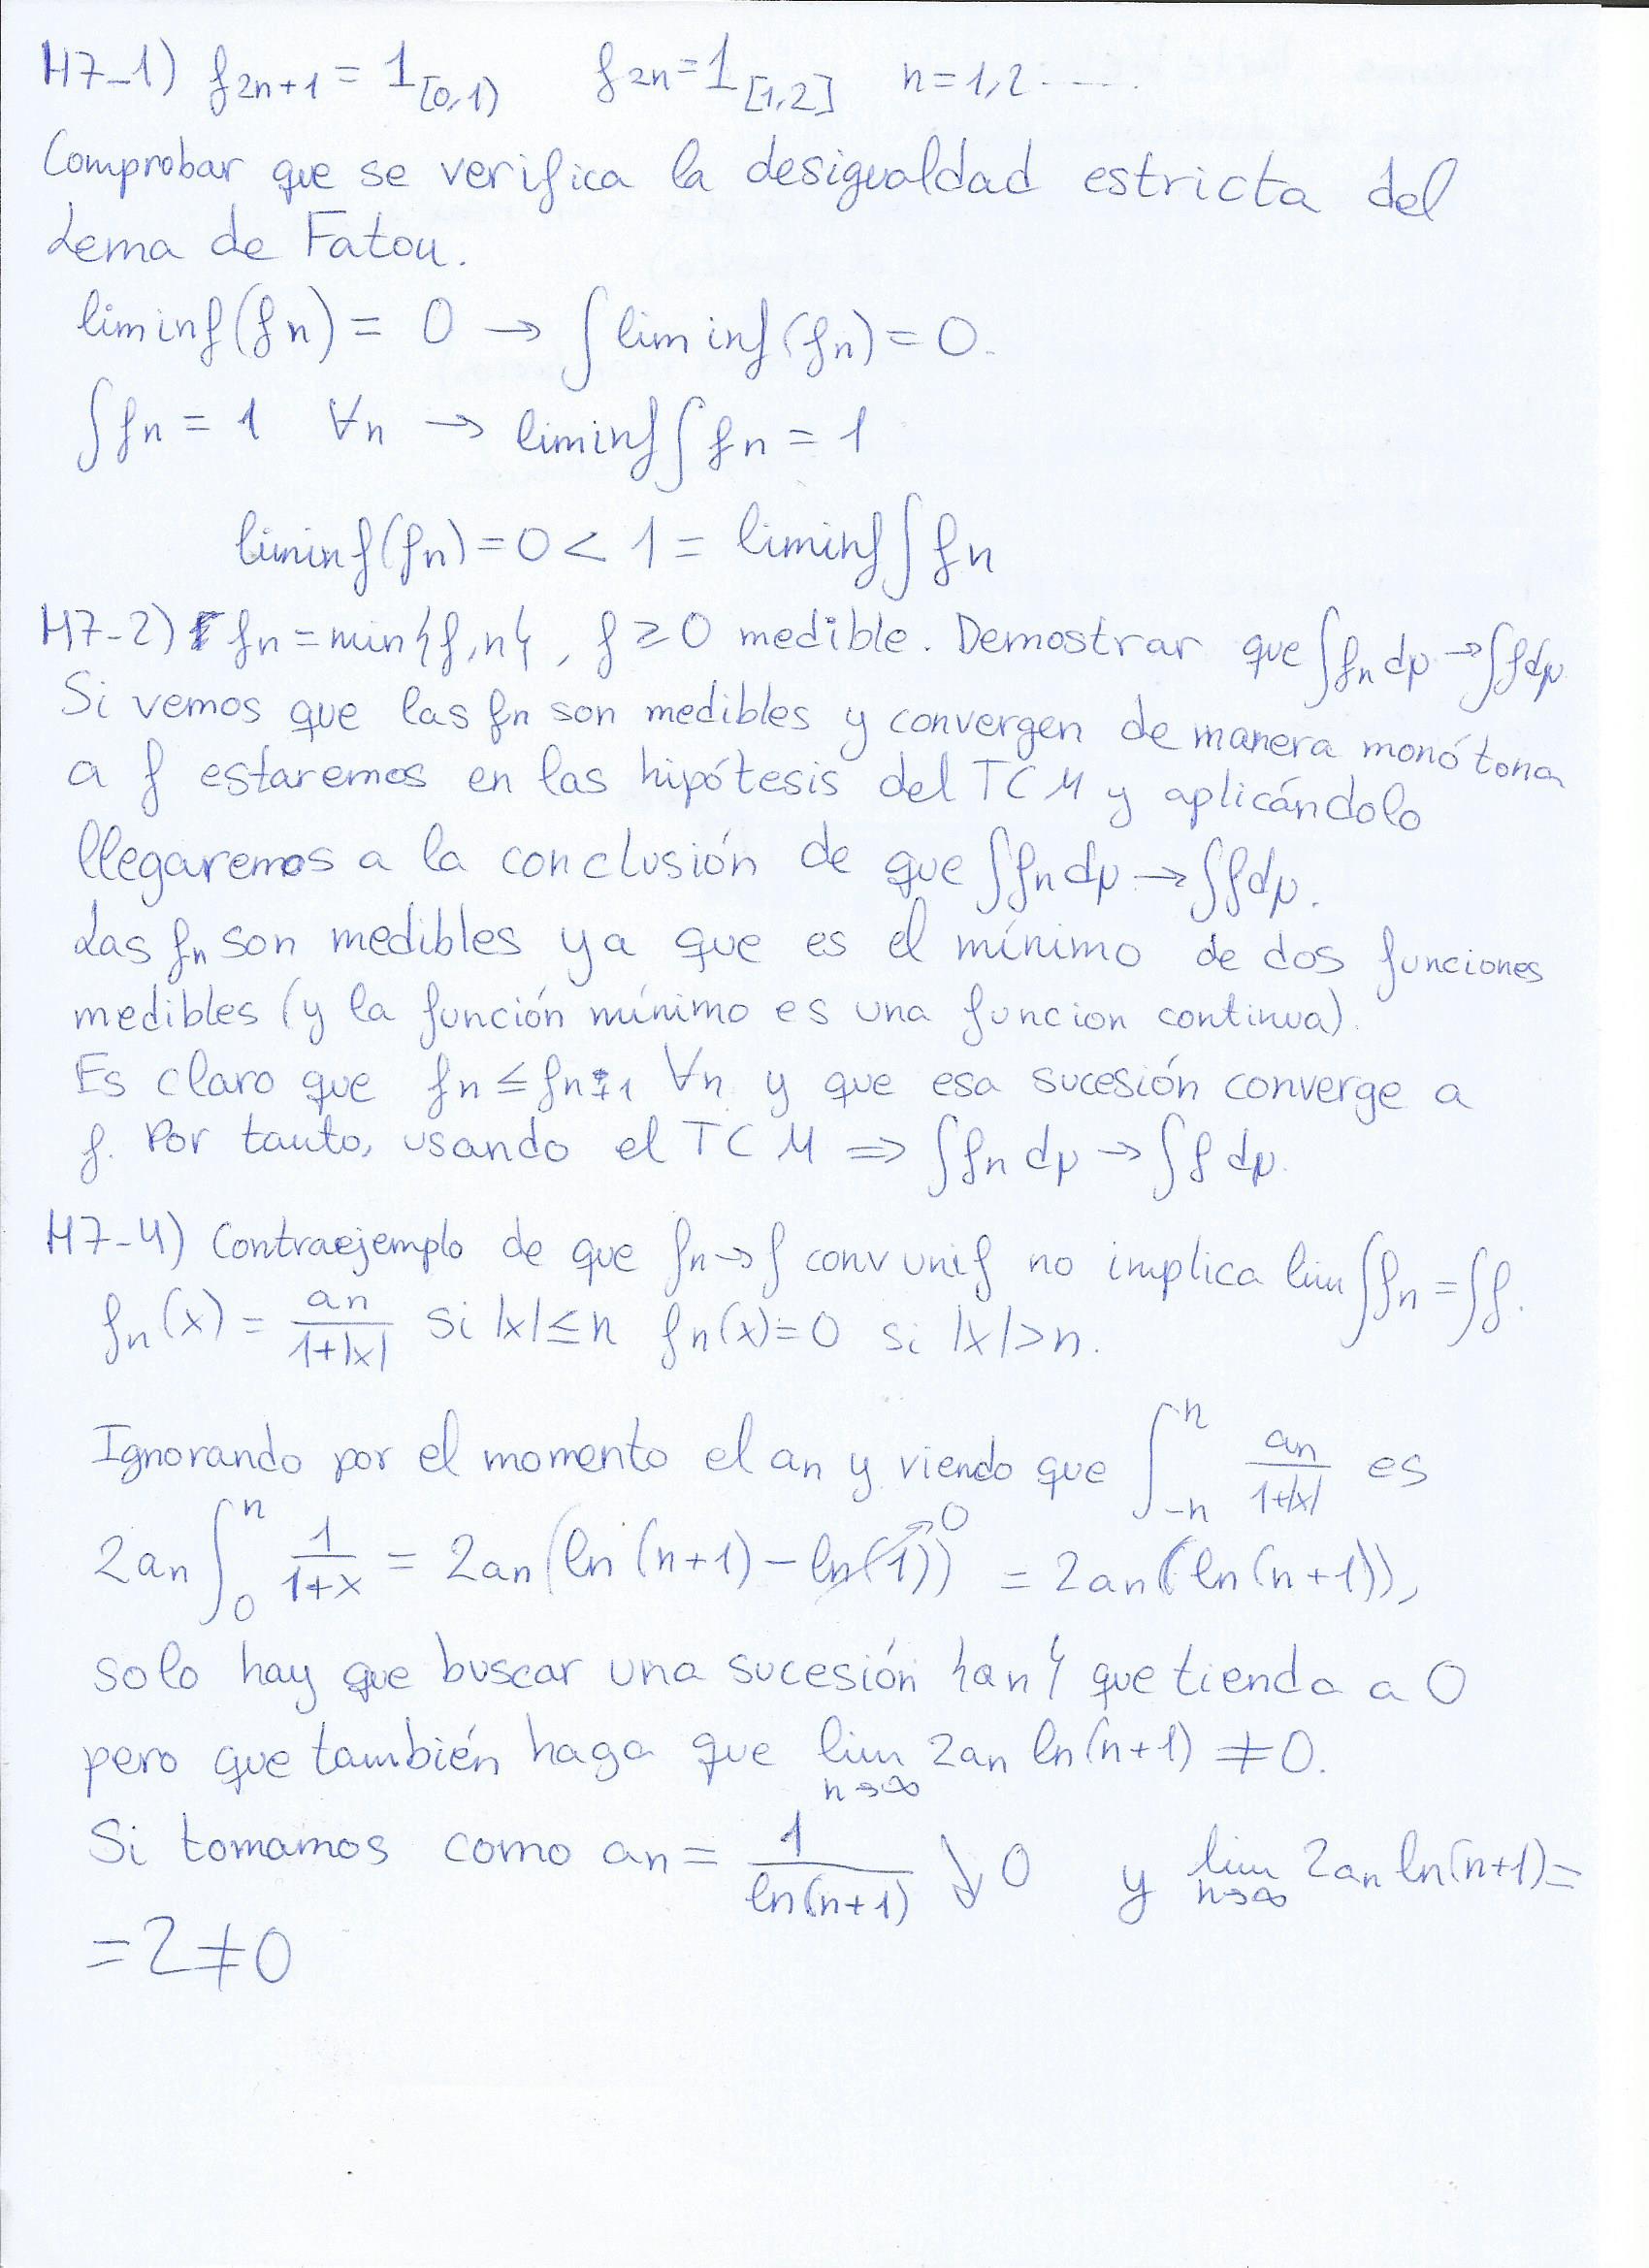 H7-1) f_{2n+1} = 1_{[0,1)}   f_{2n} = 1_{[1,2]}   n=1,2.....
Comprobar que se verifica la desigualdad estricta del
Lema de Fatou.
liminf(f_n) = 0 → ∫liminf(f_n) = 0.
∫f_n = 1  ∀n → liminf∫f_n = 1
liminf(f_n) = 0 < 1 = liminf∫f_n
H7-2) f_n = min{f,n}, f ≥ 0 medible. Demostrar que ∫f_n dμ → ∫f dμ
Si vemos que las f_n son medibles y convergen de manera monótona
a f estaremos en las hipótesis del TCM y aplicándolo
llegaremos a la conclusión de que ∫f_n dμ → ∫f dμ.
Las f_n son medibles ya que es el mínimo de dos funciones
medibles (y la función mínimo es una funcion continua).
Es claro que f_n ≤ f_{n+1} ∀n y que esa sucesión converge a
f. Por tanto, usando el TCM ⇒ ∫f_n dμ → ∫f dμ.
H7-4) Contraejemplo de que f_n → f conv unif no implica lim∫f_n = ∫f.
f_n(x) = a_n/(1+|x|) si |x| ≤ n  f_n(x) = 0 si |x| > n.
Ignorando por el momento el a_n y viendo que ∫_{-n}^{n} a_n/(1+|x|) es
2a_n ∫_0^n 1/(1+x) = 2a_n(ln(n+1) - ln(1))→0 = 2a_n(ln(n+1)),
solo hay que buscar una sucesión {a_n} que tienda a 0
pero que también haga que lim_{n→∞} 2a_n ln(n+1) ≠ 0.
Si tomamos como a_n = 1/ln(n+1) ↘ 0  y lim_{n→∞} 2a_n ln(n+1) =
= 2 ≠ 0